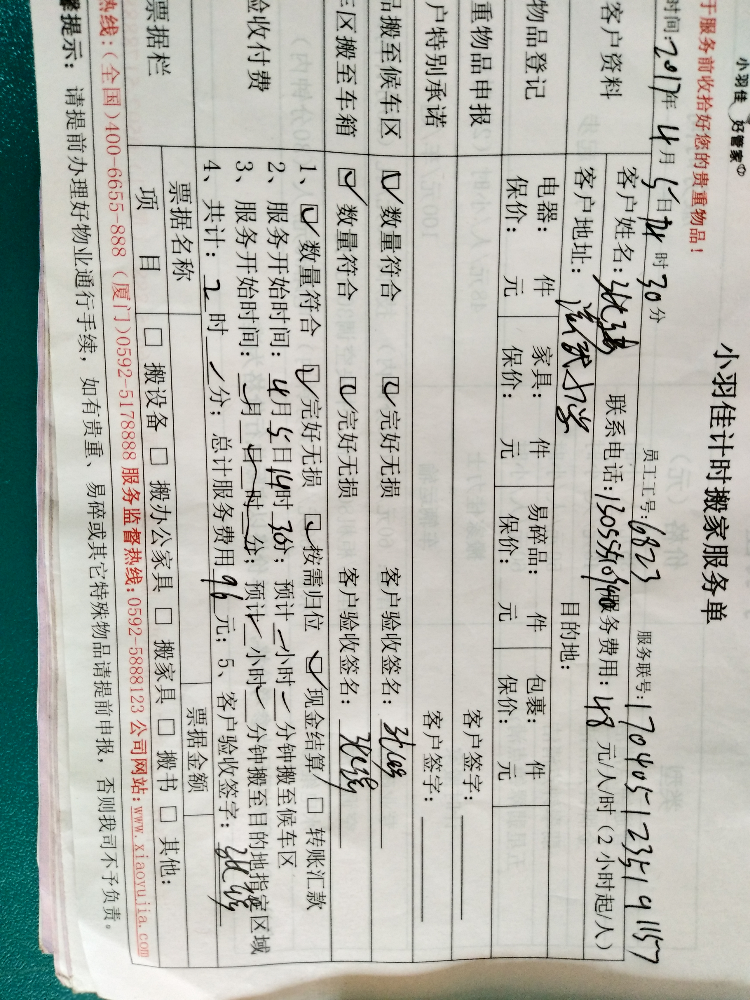 小羽佳 好管家
小羽佳计时搬家服务单
于服务前收拾好您的贵重物品！
员工工号：6823
时间：2017年4月5日14时30分
服务联号：
客户资料
客户姓名：
联系电话：
服务费用：48元/人/时（2小时起/人）
客户地址：
目的地：
物品登记
电器： 件 家具： 件 易碎品： 件 包裹： 件
保价： 元 保价： 元 保价： 元 保价： 元
重物品申报
客户签字：
户特别承诺
客户签字：
品搬至候车区
数量符合 完好无损 客户验收签名：
车区搬至车箱
数量符合 完好无损 客户验收签名：
验收付费
1、数量符合 完好无损 按需归位 现金结算 转账汇款
2、服务开始时间：4月5日14时30分；预计 小时 分钟搬至候车区
3、服务开始时间： 月 日 时 分；预计 小时 分钟搬至目的地指定区域
4、共计：2时 分；总计服务费用96元；5、客户验收签字：
票据栏
票据名称
票据金额
项 目
搬设备 搬办公家具 搬家具 搬书 其他：
热线：(全国)400-6655-888 (厦门)0592-5178888 服务监督热线：0592-5888123 公司网站：www.xiaoyujia.com
馨提示：请提前办理好物业通行手续，如有贵重、易碎或其它特殊物品请提前申报，否则我司不予负责。